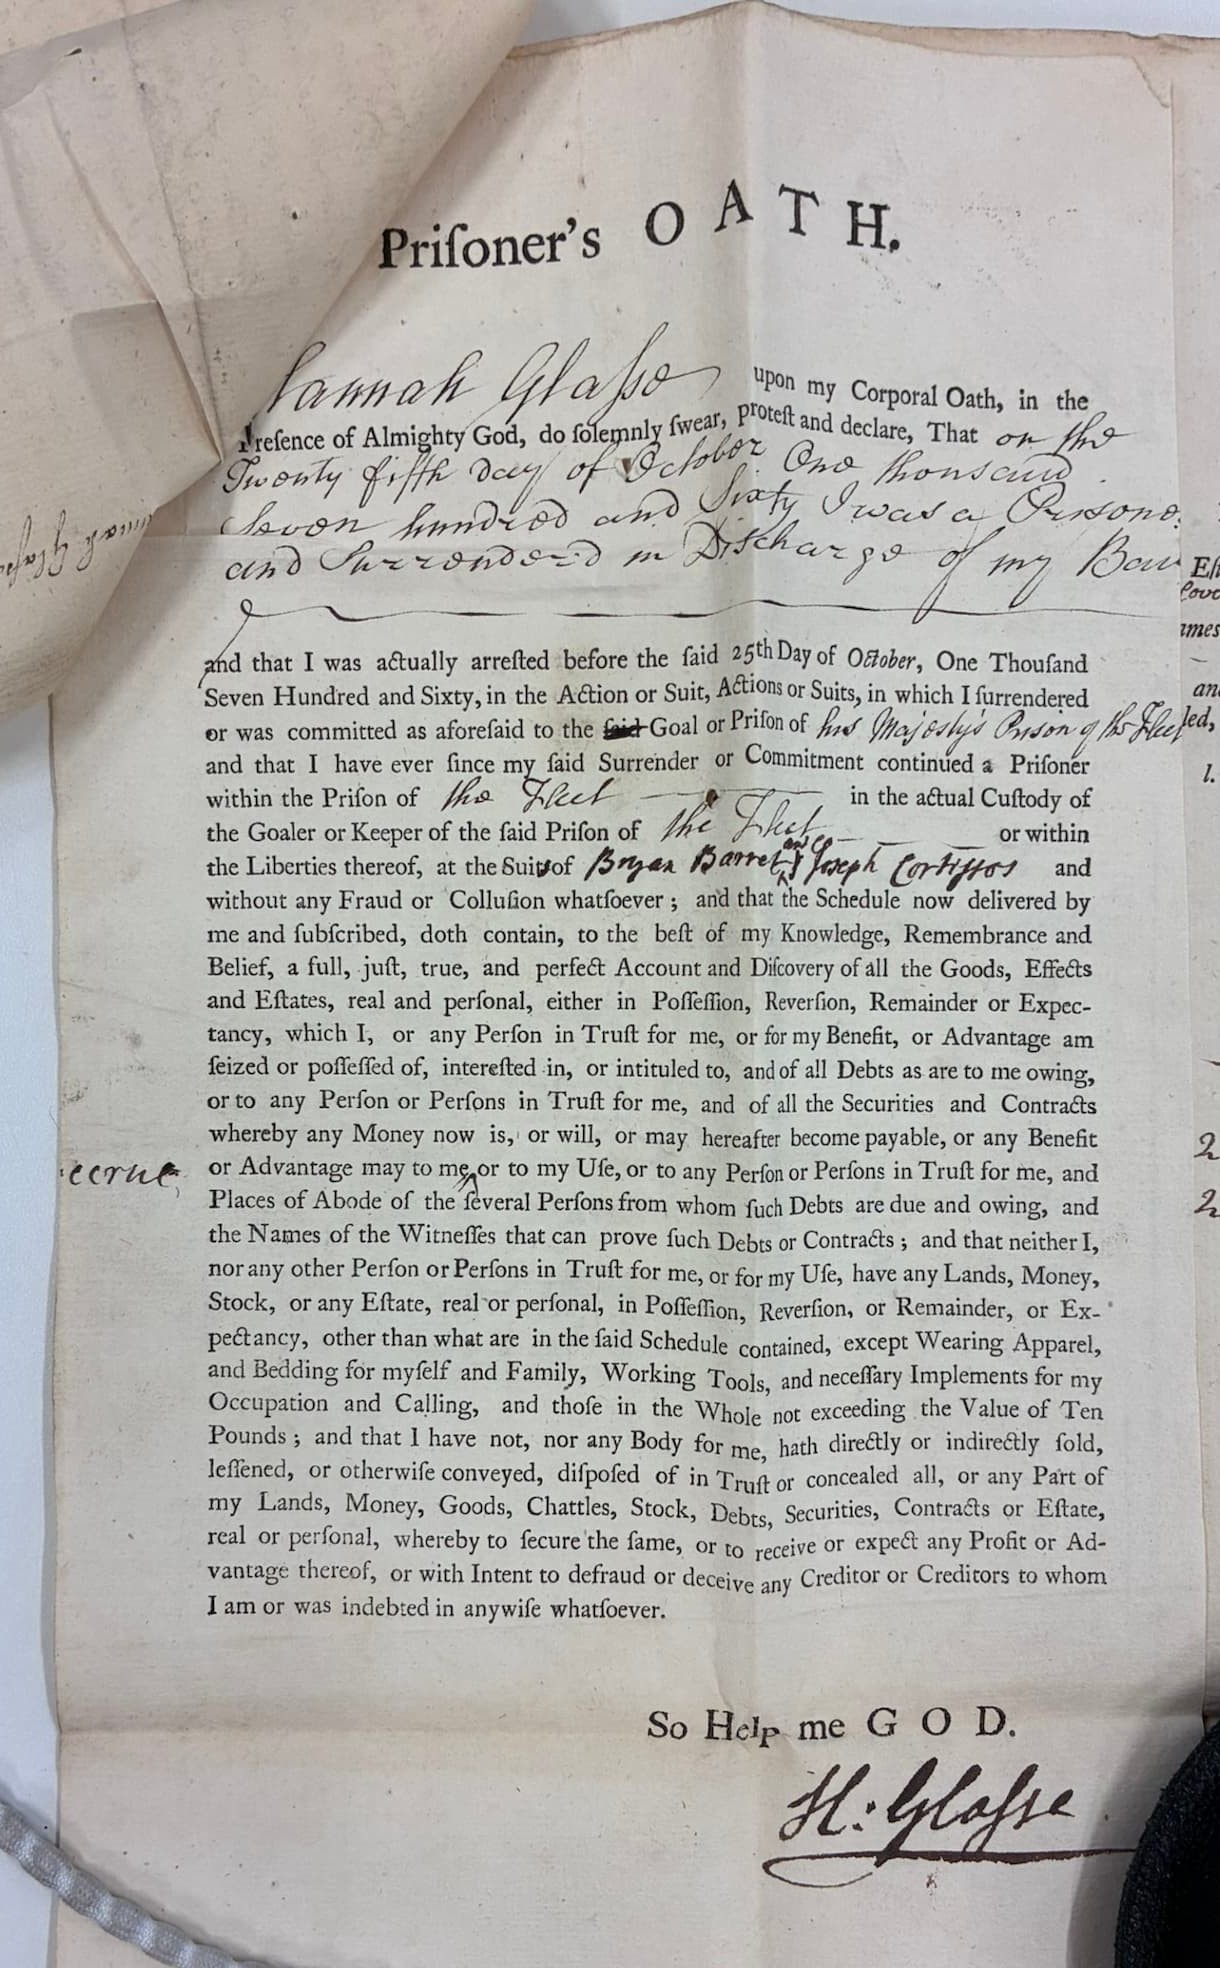 Priſoner's OATH.
Hannah Glaſse upon my Corporal Oath, in the
Preſence of Almighty God, do ſolemnly ſwear, proteſt and declare, That on the
Twenty fifth day of October One thousand
Seven hundred and Sixty I was a Prisoner
and Surrendered in Discharge of my Bail
and that I was actually arreſted before the ſaid 25th Day of October, One Thouſand
Seven Hundred and Sixty, in the Action or Suit, Actions or Suits, in which I ſurrendered
or was committed as aforeſaid to the ſaid Goal or Priſon of his Majesty's Prison of the Fleet
and that I have ever ſince my ſaid Surrender or Commitment continued a Priſoner
within the Priſon of the Fleet in the actual Cuſtody of
the Goaler or Keeper of the ſaid Priſon of the Fleet or within
the Liberties thereof, at the Suits of Bryan Barret and Co & Joseph Cortissos and
without any Fraud or Colluſion whatſoever; and that the Schedule now delivered by
me and ſubſcribed, doth contain, to the beſt of my Knowledge, Remembrance and
Belief, a full, juſt, true, and perfect Account and Diſcovery of all the Goods, Effects
and Eſtates, real and perſonal, either in Poſſeſſion, Reverſion, Remainder or Expec-
tancy, which I, or any Perſon in Truſt for me, or for my Benefit, or Advantage am
ſeized or poſſeſſed of, intereſted in, or intituled to, and of all Debts as are to me owing,
or to any Perſon or Perſons in Truſt for me, and of all the Securities and Contracts
whereby any Money now is, or will, or may hereafter become payable, or any Benefit
or Advantage may to me, or to my Uſe, or to any Perſon or Perſons in Truſt for me, and
Places of Abode of the ſeveral Perſons from whom ſuch Debts are due and owing, and
the Names of the Witneſſes that can prove ſuch Debts or Contracts; and that neither I,
nor any other Perſon or Perſons in Truſt for me, or for my Uſe, have any Lands, Money,
Stock, or any Eſtate, real or perſonal, in Poſſeſſion, Reverſion, or Remainder, or Ex-
pectancy, other than what are in the ſaid Schedule contained, except Wearing Apparel,
and Bedding for myſelf and Family, Working Tools, and neceſſary Implements for my
Occupation and Calling, and thoſe in the Whole not exceeding the Value of Ten
Pounds; and that I have not, nor any Body for me, hath directly or indirectly ſold,
leſſened, or otherwiſe conveyed, diſpoſed of in Truſt or concealed all, or any Part of
my Lands, Money, Goods, Chattles, Stock, Debts, Securities, Contracts or Eſtate,
real or perſonal, whereby to ſecure the ſame, or to receive or expect any Profit or Ad-
vantage thereof, or with Intent to defraud or deceive any Creditor or Creditors to whom
I am or was indebted in anywiſe whatſoever.
So Help me GOD.
H: Glaſse